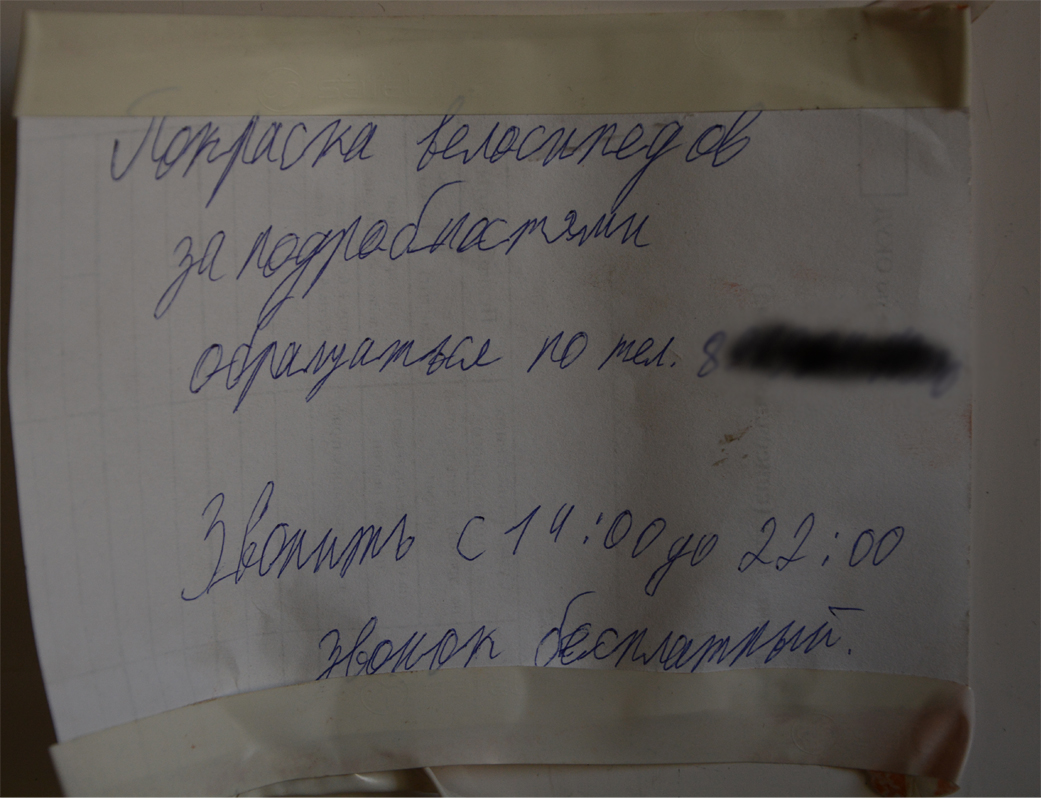 Покраска велосипедов
за подробностями
обращаться по тел. 8
Звонить с 14:00 до 22:00
звонок бесплатный.